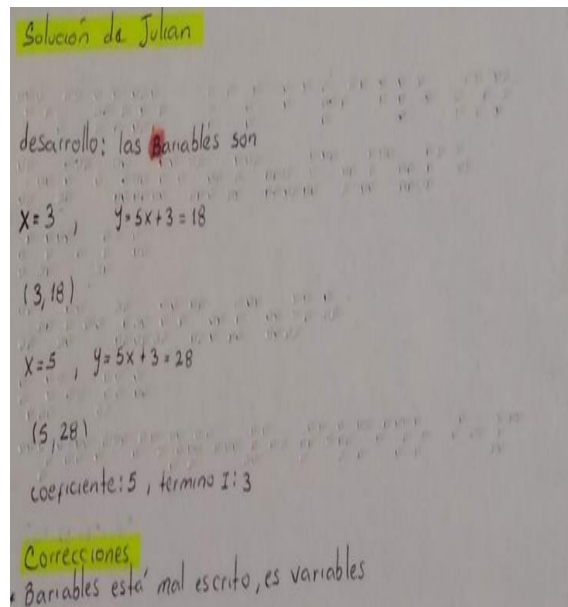 Solución de Julian
desarrollo: las Bariables son
X=3 , y=5x+3=18
(3,18)
X=5 , y=5x+3=28
(5,28)
coeficiente: 5 , término I: 3
Correcciones
• Bariables está mal escrito, es variables